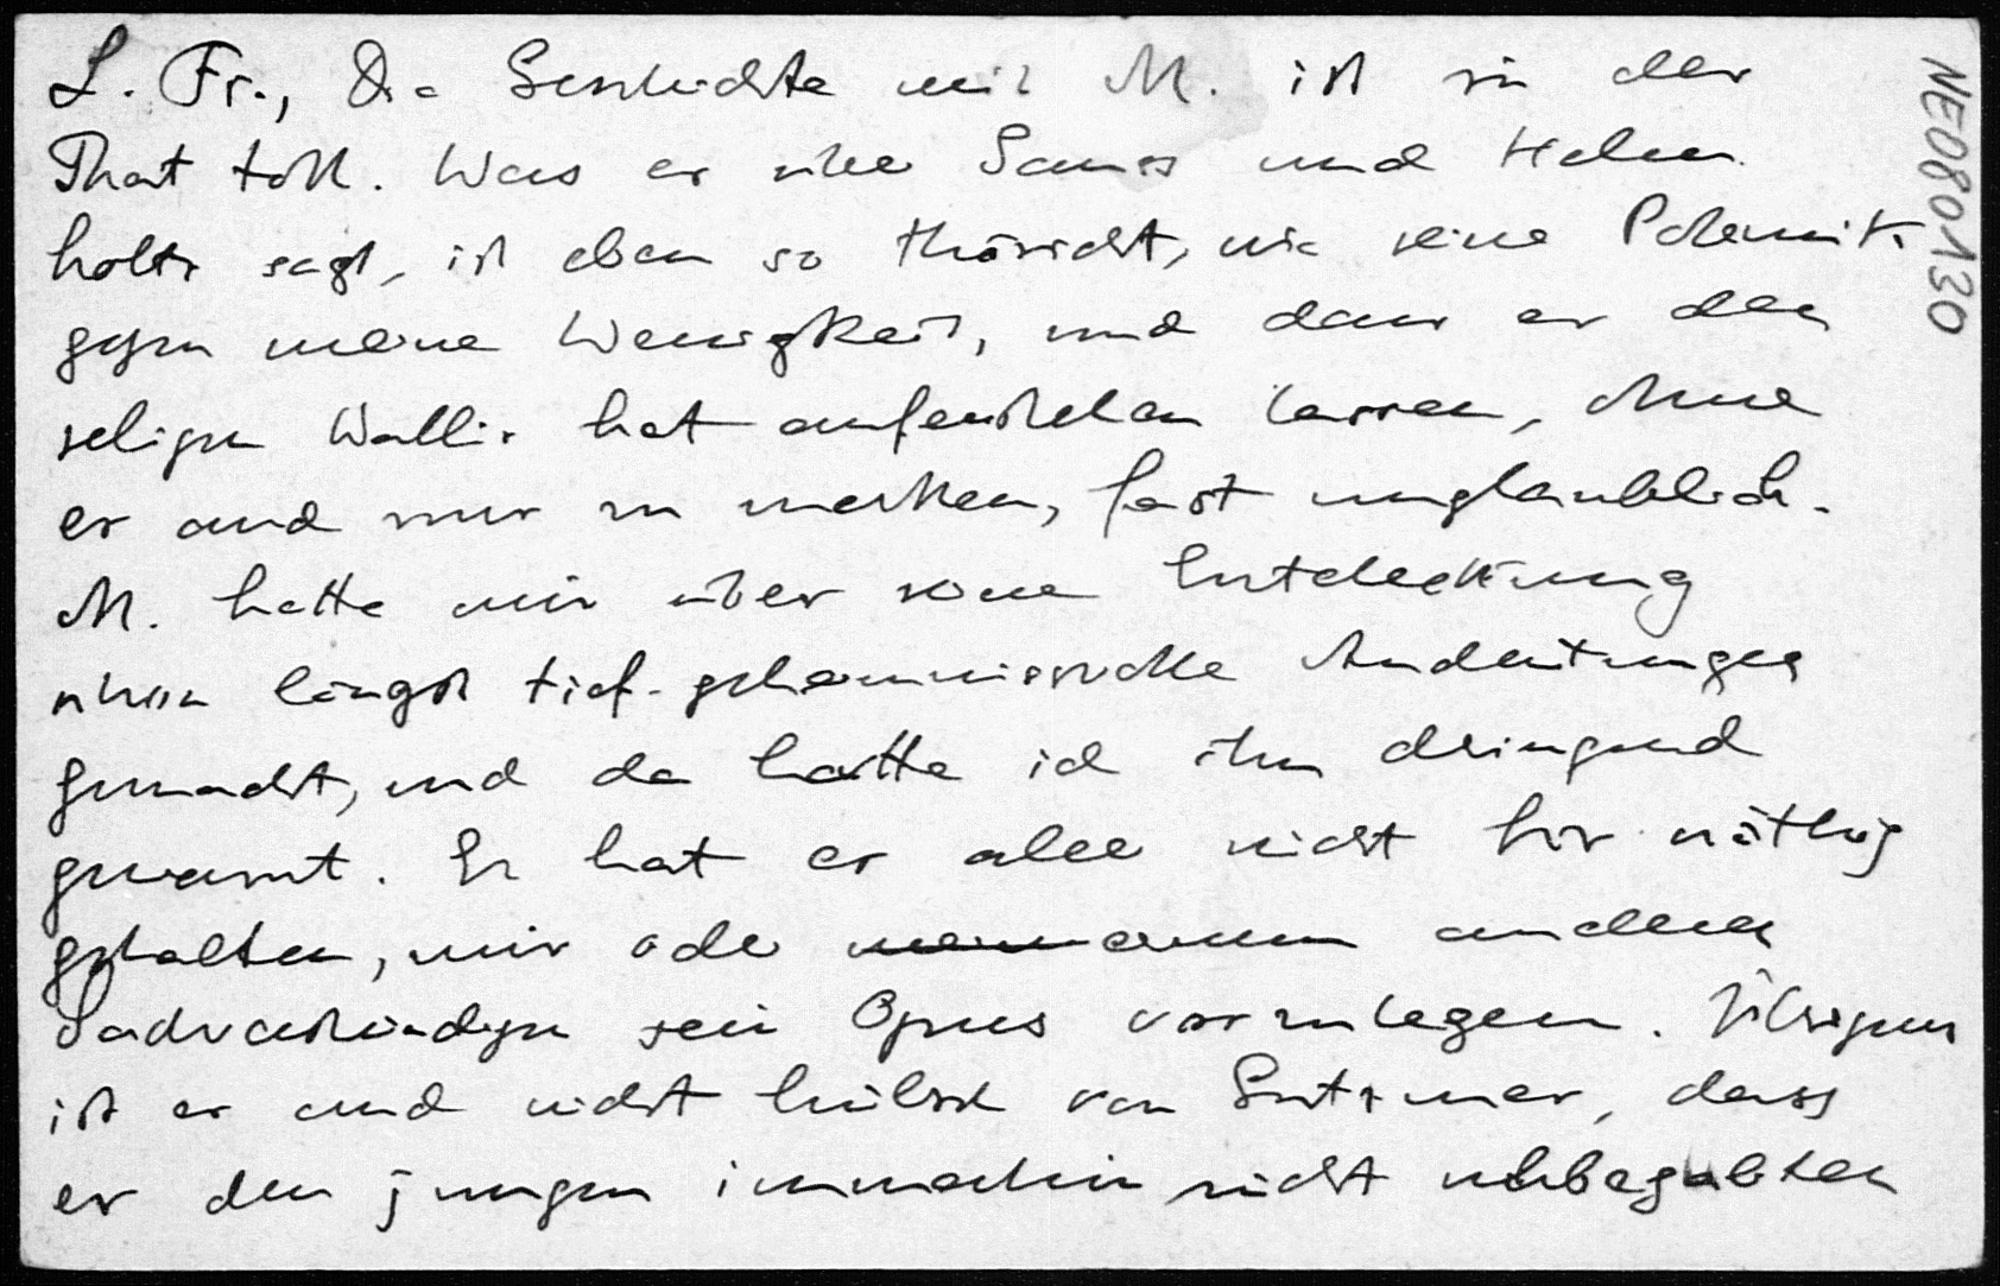 L. Fr., Die Geschichte mit M. ist in der
That toll. Was er über Gauss und Helm
holtz sagt, ist eben so thöricht, wie seine Polemik
gegen meine Wenigkeit, und dass er den
seligen Wallis hat auferstehen lassen, ohne
es auch nur zu merken, fast unglaublich.
M. hatte mir über seine Entdeckung
schon längst tief-geheimnissvolle Andeutungen
gemacht, und da hatte ich ihn dringend
gewarnt. Er hat es aber nicht für nöthig
gehalten, mir oder einem anderen
Sachverständigen sein Opus vorzulegen. Übrigens
ist es auch nicht hübsch von Gutzmer, dass
er den jungen immerhin nicht unbegabten
NE080130